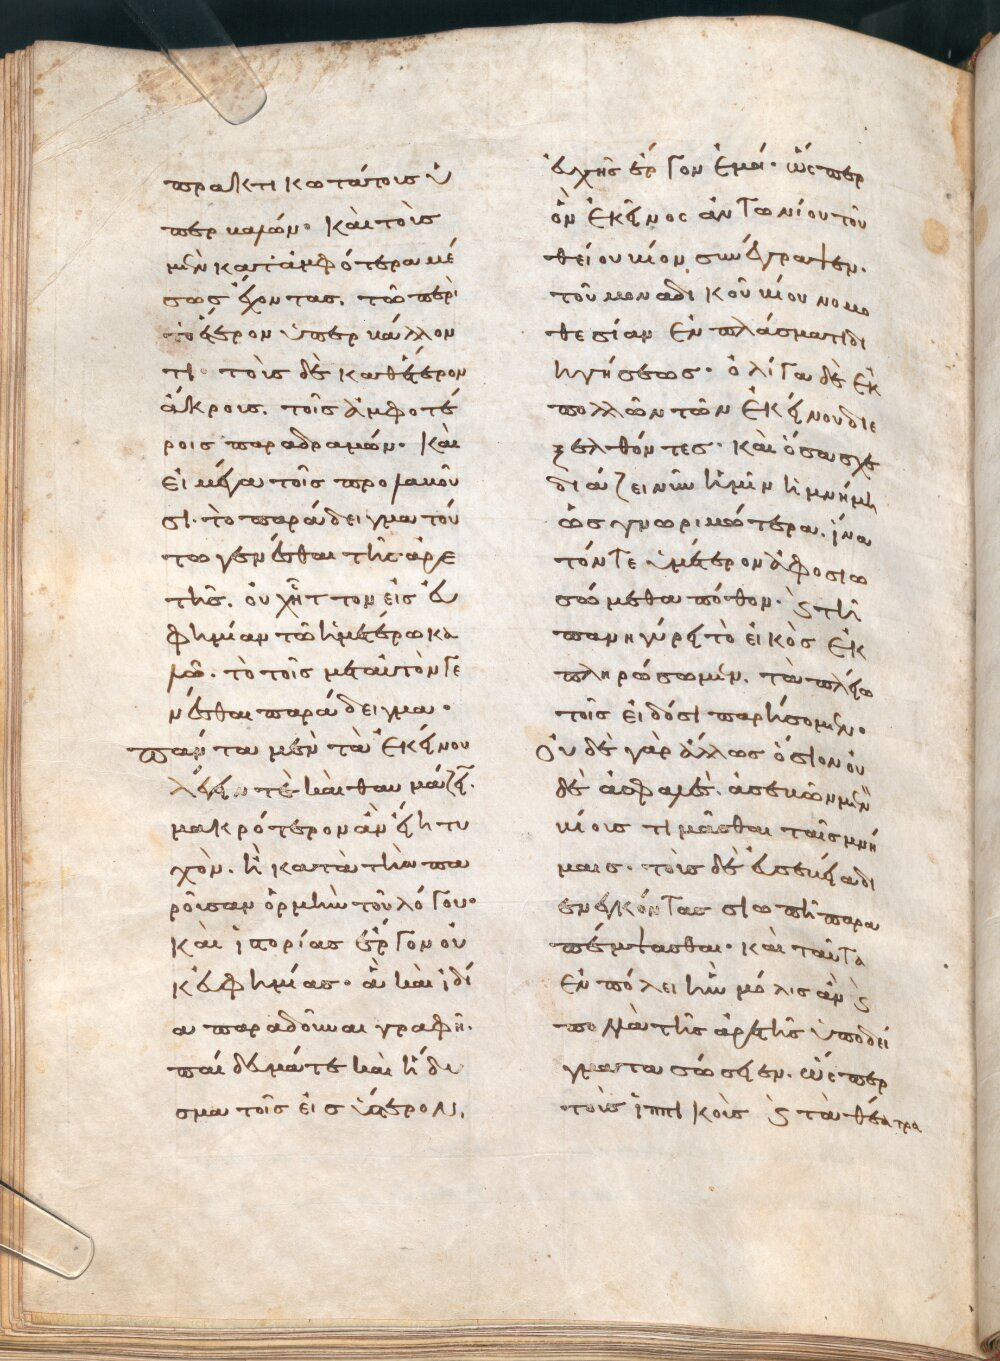 πρακτικωτάτους ὑ
περκαμών· καὶ τοὺς
μὲν κατ' ἀμφότερα μέ
σως ἔχοντας, τῷ περὶ
τὸ ἕτερον ὑπερβάλλον
τι· τοὺς δὲ καθ' ἕτερον
ἄκρους, τοῖς ἀμφοτέ
ροις παραδραμών· καὶ
εἰ μέγα τοῖς προλαβοῦ
σι· τὸ παράδειγμα τού
τω γενέσθαι τῆς ἀρε
τῆς, οὐχ ἧττον εἰς εὐ
φημίαν τῶ ἡμετέρω κα
λῶ, τὸ τοῖς μετ' αὐτὸν γε
νέσθαι παράδειγμα·
Πάντα μὲν τὰ ἐκείνου
λέγειν τὲ καὶ θαυμάζειν,
μακρότερον ἂν εἴη τυ
χὸν, ἢ κατὰ τὴν πα
ροῦσαν ὁρμὴν τοῦ λόγου·
καὶ ἱστορίας ἔργον οὐ
κ εὐφημίας· ἃ καὶ ἰδί
α παραδοῦναι γραφῆ,
παίδευμά τε καὶ ἥδυ
σμα τοῖς εἰς ὕστερον,
εὐχῆς ἔργον ἐμοί· ὥσπερ
ὃν ἐκεῖνος ἀντωνίου τοῦ
θείου βίον συνέγραψεν.
τοῦ μοναδικοῦ βίου νομο
θεσίαν ἐν πλάσματι δι
ηγήσεως· ὀλίγα δὲ ἐκ
πολλῶν τῶν ἐκείνου διε
ξελθόντες· καὶ ὅσα σχε
διάζει νῦν ἡμῖν ἡ μνήμη
ὡς γνωριμώτερα, ἵνα
τόν τε ἡμέτερον ἀφοσιω
σώμεθα πόθον· καὶ τῆ
πανηγύρει τὸ εἰκὸς ἐκ
πληρώσωμεν, τὰ πλείω
τοῖς εἰδόσι παρήσομεν·
Οὐδὲ γὰρ ἄλλως ὅσιον οὐ
δὲ ἀσφαλὲς, ἀσεβῶν μὲν
βίους τιμᾶσθαι ταῖς μνή
μαις· τοὺς δὲ εὐσεβεία δι
ενεγκόντας σιωπῆ παρα
πέμπεσθαι· καὶ ταῦτα
ἐν πόλει ἣν μόλις ἂν καὶ
πολλὰ τῆς ἀρετῆς ὑποδεί
γματα σώσειεν, ὥσπερ
τοὺς ἱππικοὺς καὶ τὰ θέατρα